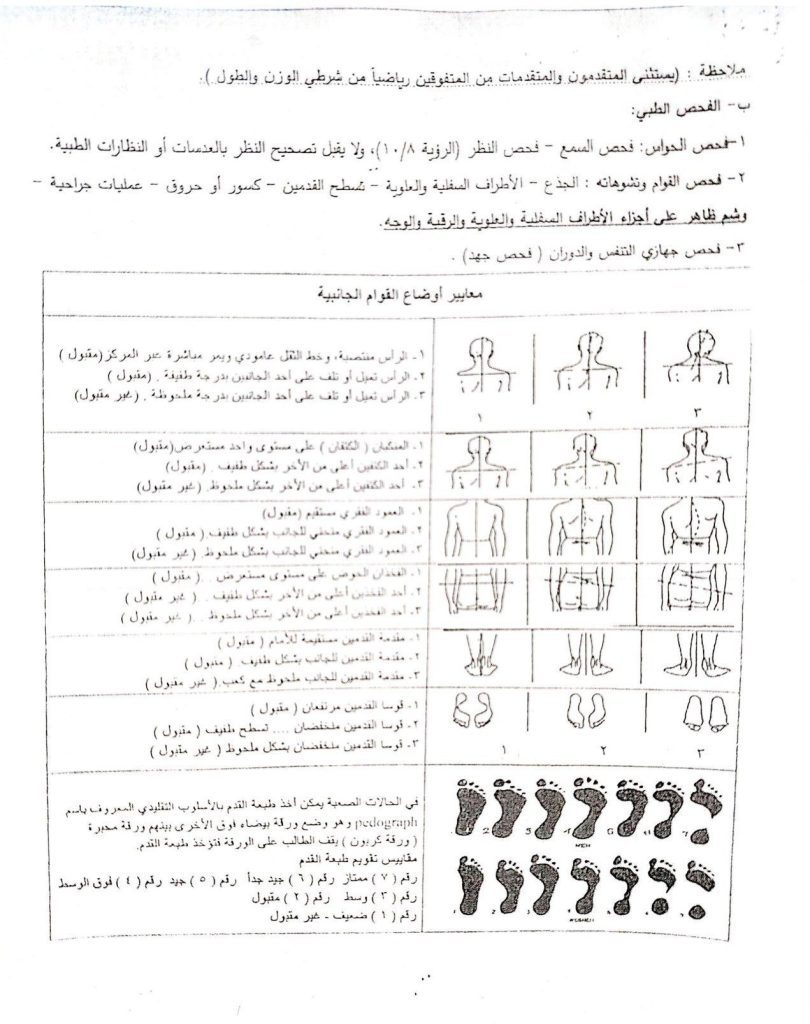 ملاحظة : (يستثنى المتقدمون والمتقدمات من المتفوقين رياضياً من شرطي الوزن والطول ).
ب- الفحص الطبي:
١-فحص الحواس: فحص السمع - فحص النظر (الرؤية ١٠/٨)، ولا يقبل تصحيح النظر بالعدسات أو النظارات الطبية.
٢- فحص القوام وتشوهاته : الجذع - الأطراف السفلية والعلوية - تسطح القدمين - كسور أو حروق - عمليات جراحية -
وشم ظاهر على أجزاء الأطراف السفلية والعلوية والرقبة والوجه.
٣- فحص جهازي التنفس والدوران ( فحص جهد) .
معايير أوضاع القوام الجانبية
١- الرأس منتصبة، وخط الثقل عامودي ويمر مباشرة عبر المركز(مقبول )
٢- الرأس تميل أو تلف على أحد الجانبين بدرجة طفيفة . (مقبول )
٣- الرأس تميل أو تلف على أحد الجانبين بدرجة ملحوظة . (غير مقبول)
١ ٢ ٣
١- المنكبان ( الكتفان ) على مستوى واحد مستعرض(مقبول)
٢- أحد الكتفين أعلى من الأخر بشكل طفيف . (مقبول)
٣- أحد الكتفين أعلى من الأخر بشكل ملحوظ. (غير مقبول)
١- العمود الفقري مستقيم (مقبول)
٢- العمود الفقري منحني للجانب بشكل طفيف.( مقبول )
٣- العمود الفقري منحني للجانب بشكل ملحوظ .( غير مقبول)
١- الفخذان الحوض على مستوى مستعرض . .( مقبول )
٢- أحد الفخذين أعلى من الأخر بشكل طفيف . .( غير مقبول )
٣- أحد الفخذين أعلى من الأخر بشكل ملحوظ . .( غير مقبول )
١- مقدمة القدمين مستقيمة للأمام ( مقبول )
٢- مقدمة القدمين للجانب بشكل طفيف.( مقبول )
٣- مقدمة القدمين للجانب ملحوظ مع كعب.( غير مقبول )
١- قوسا القدمين مرتفعان ( مقبول )
٢- قوسا القدمين منخفضان .... تسطح طفيف ( مقبول )
٣- قوسا القدمين منخفضان بشكل ملحوظ ( غير مقبول )
١ ٢ ٣
في الحالات الصعبة يمكن أخذ طبعة القدم بالأسلوب التقليدي المعروف باسم
pedograph وهو وضع ورقة بيضاء فوق الأخرى بينهم ورقة محبرة
( ورقة كربون ) يقف الطالب على الورقة فتؤخذ طبعة القدم.
مقاييس تقويم طبعة القدم
رقم ( ٧ ) ممتاز رقم ( ٦ ) جيد جداً رقم ( ٥ ) جيد رقم ( ٤ ) فوق الوسط
رقم ( ٣ ) وسط رقم ( ٢ ) مقبول
رقم ( ١ ) ضعيف - غير مقبول
MEN
WOMEN